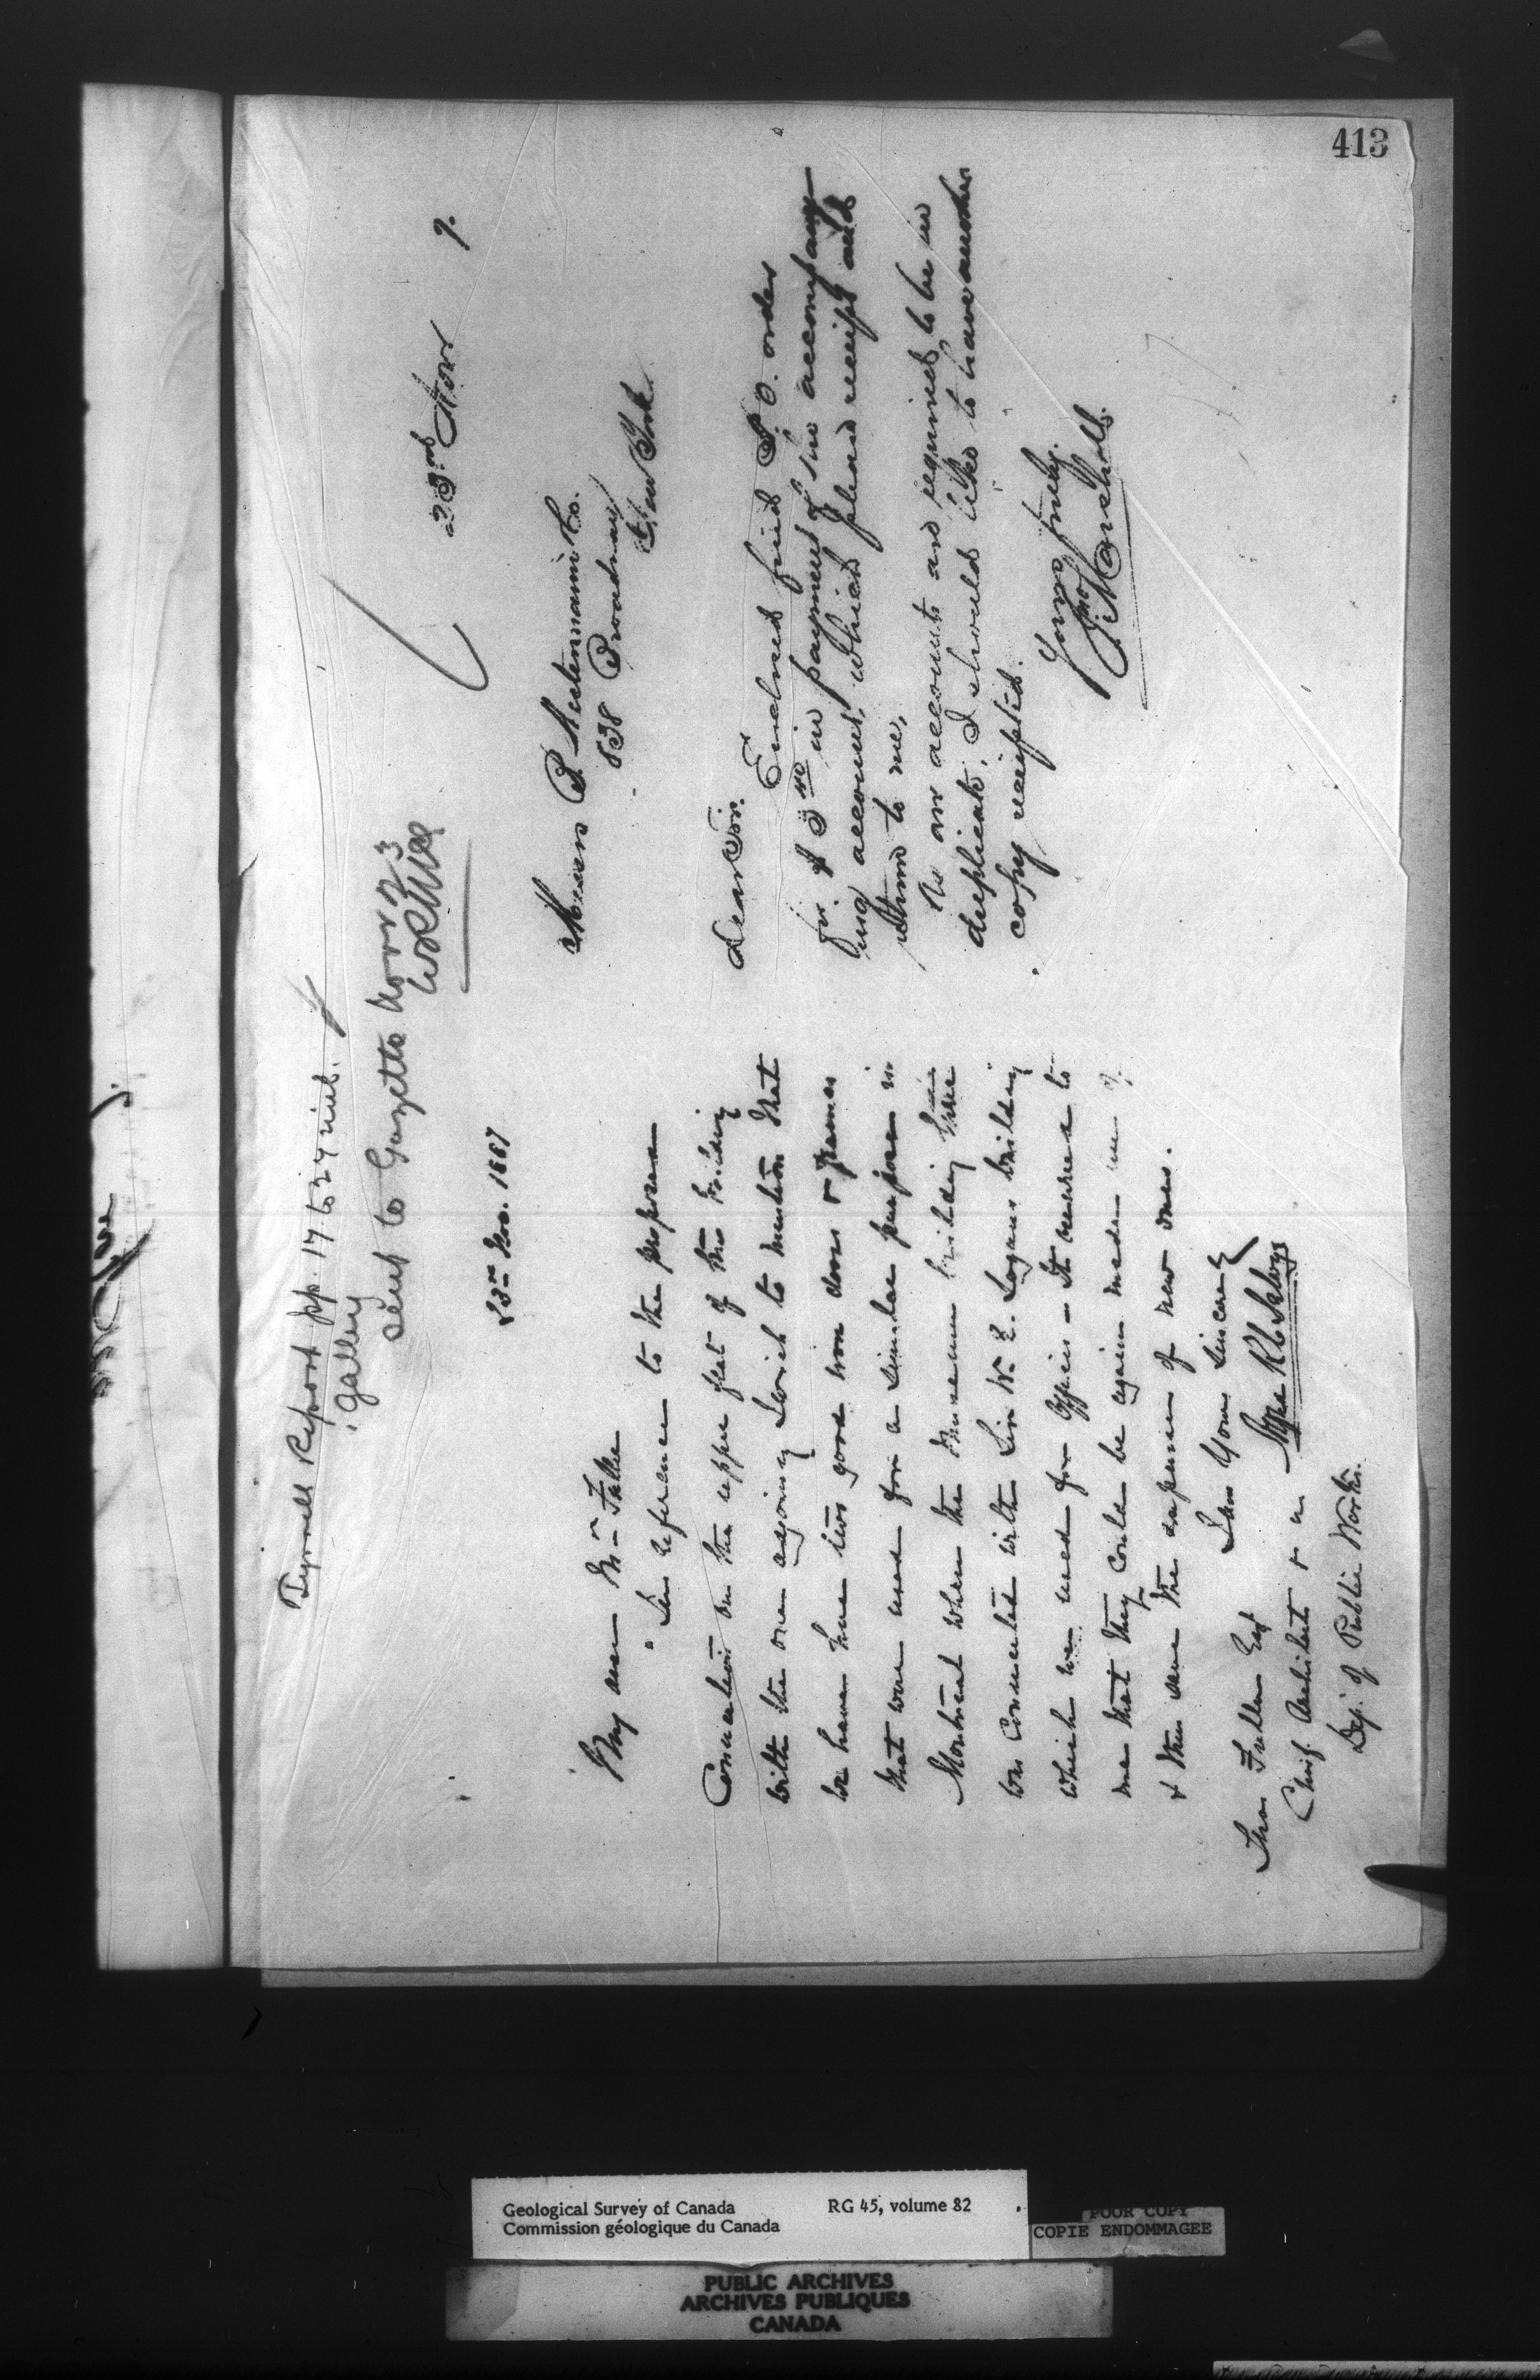 413
Tyrrell Report pp. 17 to 27 incl.
galley
sent to Gazette Nov 23
23rd Nov. 1887
My dear Mr Fuller
In reference to the proposed
Connection on the upper flat of this building
with the one adjoining I wish to mention that
we have here two good iron doors & frames
that were used for a similar purpose in
Montreal when the Museum building there
was connected with Sir W. E. Logans building
which was used for offices - It occurred to
me that they could be again made use of
& thus save the expense of new ones.
I am Yours Sincerely
Thos Fuller Esq
Chief Architect &c
Dep. of Public Works.
23rd Nov 7.
B. Westermann & Co.
838 Broadway
New York
Dear Sir.
Enclosed find P. O. order
for $ 3 40 in payment of the accompany-
ing account, which please receipt and
return to me,
As our accounts are required to be in
duplicate, I should like to have another
copy receipted.
Yours truly.
Jno Marshall
Geological Survey of Canada RG 45, volume 82
Commission géologique du Canada
POOR COPY
COPIE ENDOMMAGEE
PUBLIC ARCHIVES
ARCHIVES PUBLIQUES
CANADA